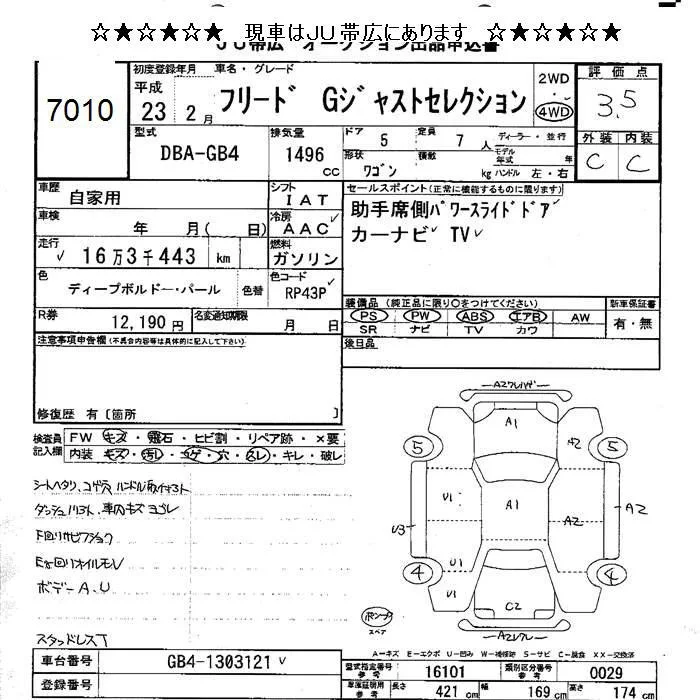 ☆★☆★☆★☆ 現車はJU帯広にあります ☆★☆★☆★☆
JU帯広 オークション出品申込書
7010
初度登録年月 車名・グレード
平成 23 2月 フリード Gジャストセレクション
2WD ・ 4WD
評価点
3.5
外装 内装
C C
型式 DBA-GB4
排気量 1496 cc
ドア 5 定員 7 人 ディーラー・並行
形状 ワゴン 積数 kg モデル年式 年 ハンドル 左・右
車歴 自家用
シフト IAT
セールスポイント(正常に機能するものに限ります)
助手席側パワースライドドア
カーナビ TV
車検 年 月( 日)
冷房 AAC
走行 16万3千443 km
燃料 ガソリン
色 ディープボルドー・パール 色替
色コード RP43P
装備品(純正品に限り○をつけてください) 新車保証書
PS PW ABS エアB AW 有・無
SR ナビ TV カワ
R券 12,190円 名変通知期限 月 日
後日品
注意事項申告欄(不具合内容等は具体的に記入して下さい)
修復歴 有[箇所 ]
検査員記入欄
FW キズ・飛石・ヒビ割・リペア跡・×要
内装 キズ・汚れ・コゲ・穴・スレ・キレ・破レ
シートヘタリ、コゲ穴 ハンドル取付けスト
ダッシュリスト、車内キズ ヨゴレ
下回リサビフショク
E/g回りオイルモレ
ボデーA.U
スタッドレスT
A2ワレハゲ
A1
A2
5
5
U1
A1
A2
A2
U3
U1
U1
4
4
C2
A2ワレ
パンク
スペア
A-キズ E-エクボ U-凹み W-補修跡 S-サビ C-腐食 XX-交換済
車台番号 GB4-1303121
登録番号
型式指定番号 参考 16101 類別区分番号 参考 0029
車庫証明用 参考 長さ 421 cm 幅 169 cm 高さ 174 cm